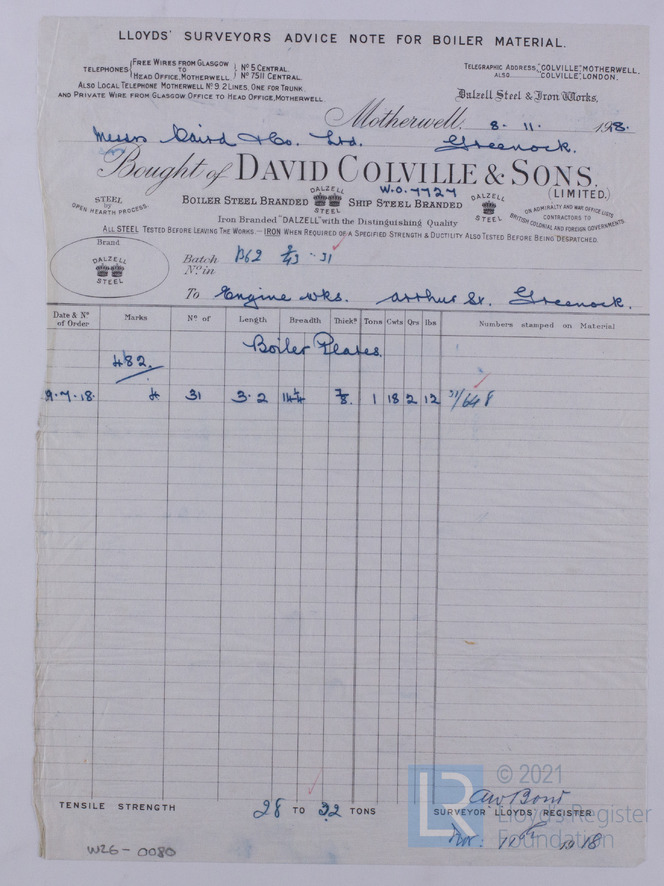 LLOYDS' SURVEYORS ADVICE NOTE FOR BOILER MATERIAL.
TELEPHONES { FREE WIRES FROM GLASGOW TO HEAD OFFICE, MOTHERWELL } Nº 5 CENTRAL. Nº 7511 CENTRAL.
ALSO LOCAL TELEPHONE MOTHERWELL Nº 9. 2 LINES, ONE FOR TRUNK
AND PRIVATE WIRE FROM GLASGOW OFFICE TO HEAD OFFICE, MOTHERWELL
TELEGRAPHIC ADDRESS, "COLVILLE", MOTHERWELL.
ALSO "COLVILLE", LONDON.
Dalzell Steel & Iron Works,
Motherwell, 8. 11. 1918.
Messrs Caird & Co. Ltd. Greenock.
Bought of DAVID COLVILLE & SONS.
(LIMITED.)
W.O. 7727
STEEL BY OPEN HEARTH PROCESS.
BOILER STEEL BRANDED DALZELL STEEL SHIP STEEL BRANDED DALZELL STEEL
ON ADMIRALTY AND WAR OFFICE LISTS
CONTRACTORS TO
BRITISH COLONIAL AND FOREIGN GOVERNMENTS.
Iron Branded "DALZELL" with the Distinguishing Quality
ALL STEEL TESTED BEFORE LEAVING THE WORKS. – IRON WHEN REQUIRED OF A SPECIFIED STRENGTH & DUCTILITY ALSO TESTED BEFORE BEING DESPATCHED.
Brand
DALZELL STEEL
Batch Nº in B62 31
To Engine Wks. Arthur St. Greenock.
Date & Nº of Order Marks Nº of Length Breadth Thick Tons Cwts Qrs lbs Numbers stamped on Material
Boiler Plates.
482.
9.7.18. 4 31 3.2 7/8. 1 18 2 12 31/648
TENSILE STRENGTH 28 TO 32 TONS
AW Bond
SURVEYOR LLOYDS' REGISTER
Nov. 1918
W26-0080
LR
© 2021
Lloyd's Register
Foundation